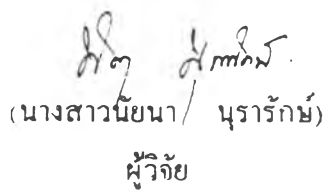 (นางสาวนัยนา นุรารักษ์)
ผู้วิจัย